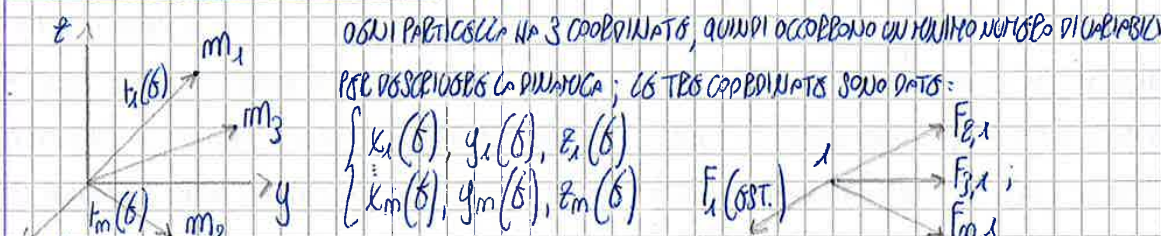 z
m1
OGNI PARTICELLA HA 3 COORDINATE, QUINDI OCCORRONO UN MINIMO NUMERO DI VARIABILI
r1(t)
PER DESCRIVERE LA DINAMICA; LE TRE COORDINATE SONO DATE:
m3
x1(t), y1(t), z1(t)
F2,1
1
F3,1 ;
xm(t), ym(t), zm(t)
F1(EST.)
y
rm(t)
m2
Fm,1